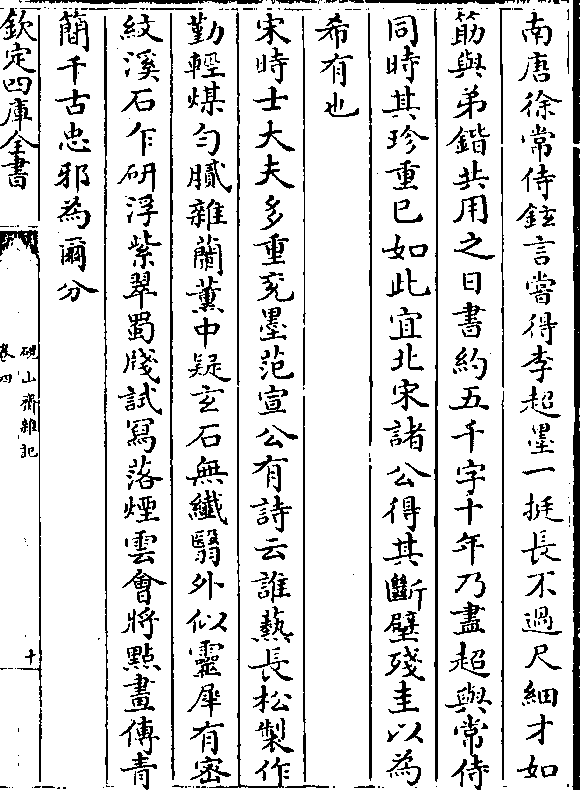 南唐徐常侍鉉言嘗得李超墨一挺長不過尺細才如
筯與弟鍇共用之日書約五千字十年乃盡超與常侍
同時其珍重已如此宜北宋諸公得其斷璧殘圭以為
希有也
宋時士大夫多重兖墨范宣公有詩云誰爇長松製作
勤輕煤勻膩雜蘭薰中疑玄石無纖翳外似靈犀有密
紋溪石乍研浮紫翠蜀牋試寫落煙雲會將點畫傳青
簡千古忠邪為爾分
欽定四庫全書
硯山齋雜記
卷四
十